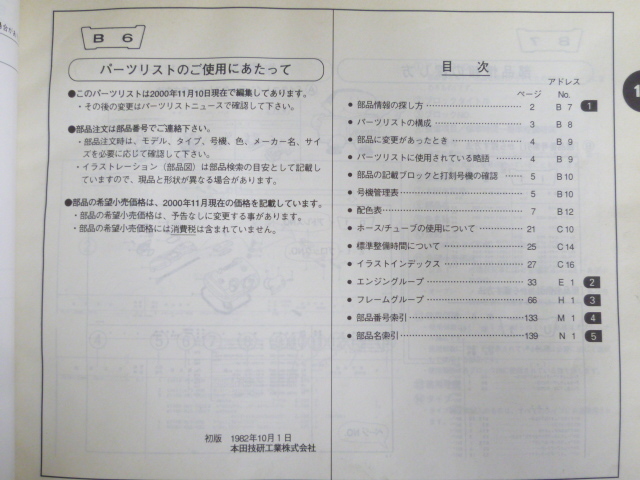 B 6
パーツリストのご使用にあたって
●このパーツリストは2000年11月10日現在で編集してあります。
・その後の変更はパーツリストニュースで確認して下さい。
●部品注文は部品番号でご連絡下さい。
・部品注文時は、モデル、タイプ、号機、色、メーカー名、サイ
ズを必要に応じて確認して下さい。
・イラストレーション（部品図）は部品検索の目安として記載し
ていますので、現品と形状が異なる場合があります。
●部品の希望小売価格は、2000年11月現在の価格を記載しています。
・部品の希望小売価格は、予告なしに変更する事があります。
・部品の希望小売価格には消費税は含まれていません。
初版 1982年10月1日
本田技研工業株式会社
目 次
アドレス
ページ No.
● 部品情報の探し方 2 B 7 1
● パーツリストの構成 3 B 8
● 部品に変更があったとき 4 B 9
● パーツリストに使用されている略語 4 B 9
● 部品の記載ブロックと打刻号機の確認 5 B10
● 号機管理表 5 B10
● 配色表 7 B12
● ホース/チューブの使用について 21 C10
● 標準整備時間について 25 C14
● イラストインデックス 27 C16
● エンジングループ 33 E 1 2
● フレームグループ 66 H 1 3
● 部品番号索引 133 M 1 4
● 部品名索引 139 N 1 5
1